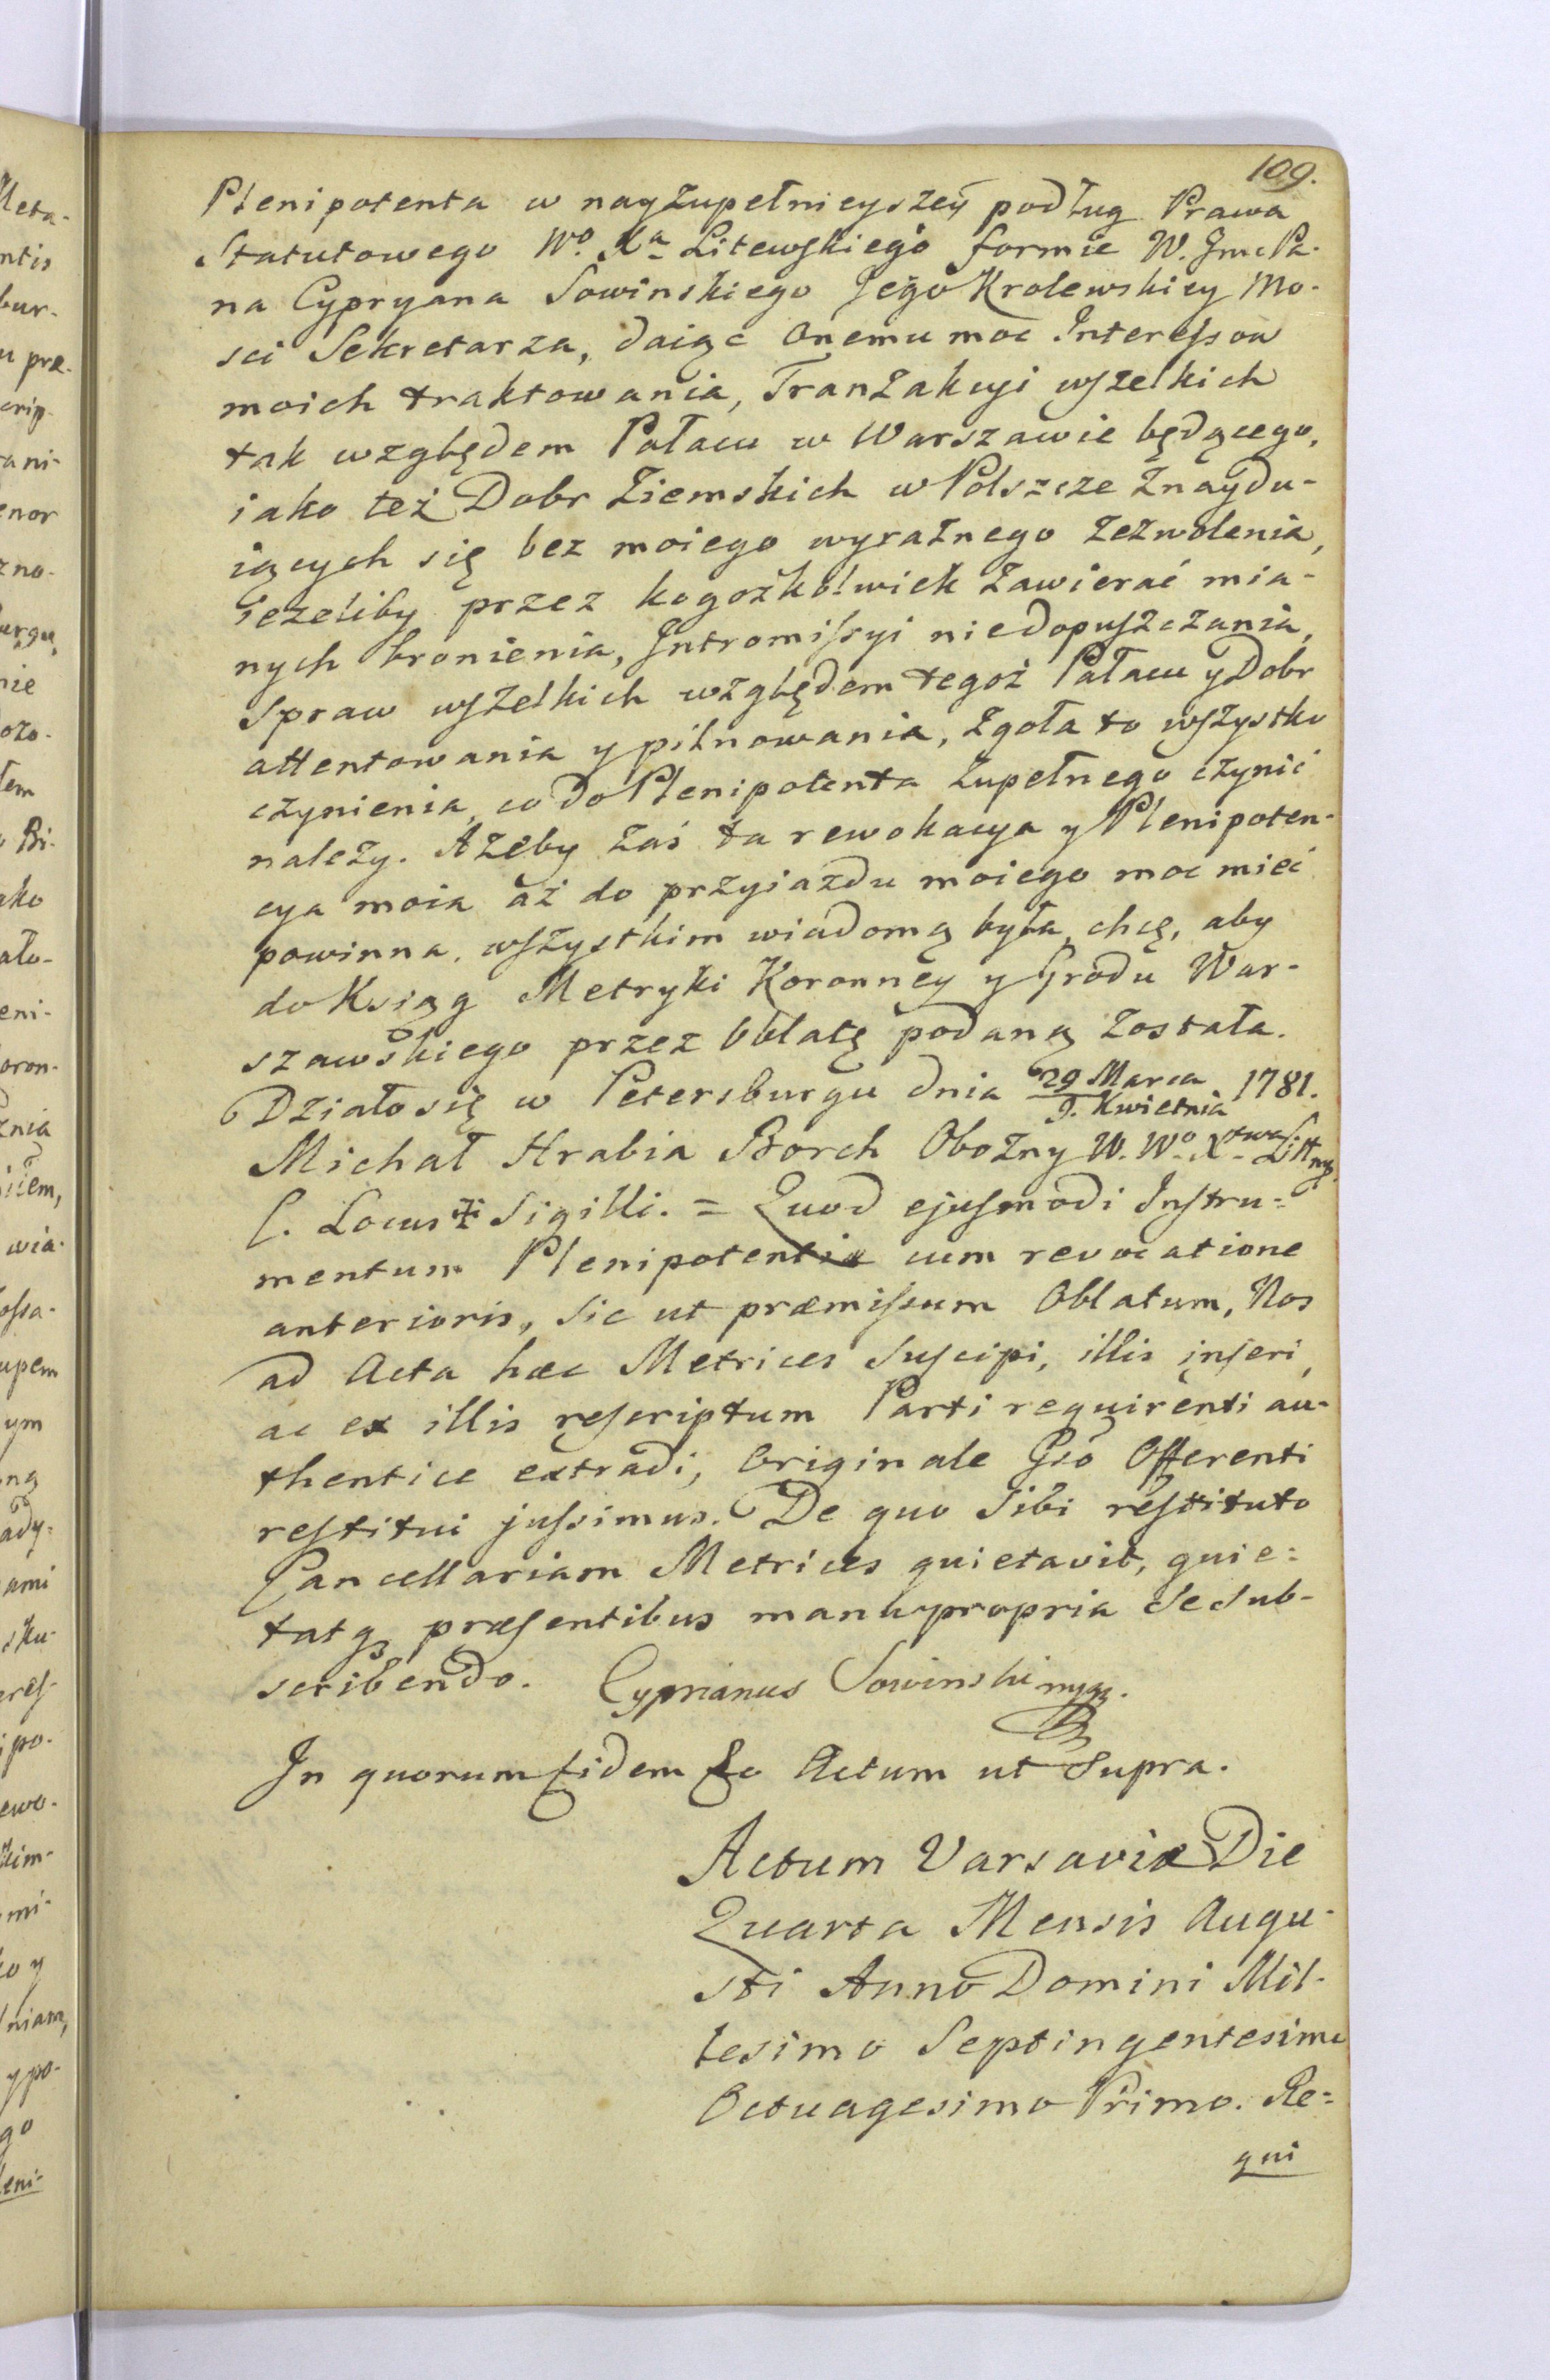 109.
Plenipotenta w nayzupełnieyszey podług Prawa
Statutowego Wo. Xa Litewskiego formie W. Jmc Pa-
na Cypryana Sowinskiego Jego Krolewskiey Mo-
sci Sekretarza, daiąc onemu moc Interessow
moich traktowania, Tranzakcyi wszelkich
tak względem Pałacu w Warszawie będącego,
iako też Dobr Ziemskich w Polszcze znaydu-
iących się bez moiego wyraznego zezwolenia,
iezeliby przez kogożkolwiek zawierać mia-
nych bronienia, Intromissyi niedopuszczania,
Spraw wszelkich względem tegoż Pałacu y Dobr
attentowania y pilnowania, zgoła to wszystko
czynienia, co do Plenipotenta zupełnego czynić
należy. Ażeby zaś ta rewokacya y Plenipoten-
cya moia aż do przyiazdu moiego moc mieć
powinna, wszystkim wiadomą była, chcę, aby
do Ksiąg Metryki Koronney y Grodu War-
szawskiego przez Oblatę podaną została.
Działo się w Petersburgu dnia 29 Marca / 9. Kwietnia 1781.
Michał Hrabia Borch Obożny W. Wo. Xtwa Litt mp.
L. Locus Sigilli. = Quod ejusmodi Instru-
mentum Plenipotentiæ cum revocatione
anterioris, sic ut præmissum Oblatum, Nos
ad Acta hæc Metrices suscipi, illis inseri,
ac ex illis rescriptum Parti requirenti au-
thentice extradi, Originale Offerenti
restitui jussimus. De quo sibi restituto
Cancellariam Metrices quietavit, quie-
tatq præsentibus manu propria se sub-
scribendo. Cyprianus Sowinski mp.
In quorum fidem &c Actum ut Supra.
Actum Varsaviæ Die
Quarta Mensis Augu-
sti Anno Domini Mil-
lesimo Septingentesimo
Octuagesimo Primo. Re-
gni